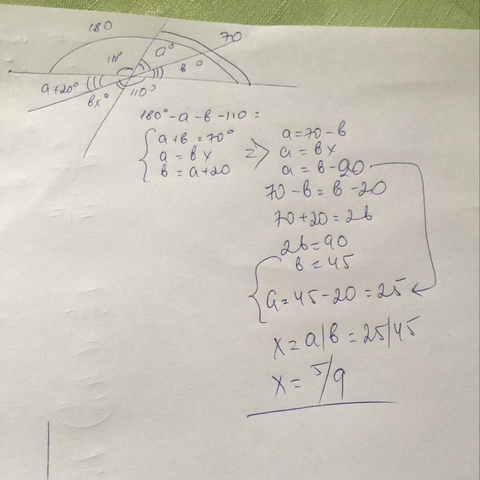 180
70
110° a° b°
a+20° bx° 110°
180°-a-b-110=
{ a+b=70°
a=bx
b=a+20
=> a=70-b
a=bx
a=b-20
70-b=b-20
70+20=2b
2b=90
b=45
a=45-20=25
x=a/b=25/45
x=5/9